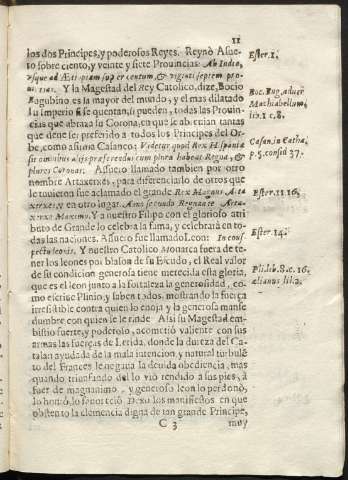 11
los dos Principes, y poderosos Reyes. Reynò Asue-
ro sobre ciento, y veinte y siete Provincias. Ab India,
usque ad Ætiopiam super centum, & viginti septem pro-
vincias. Y la Magestad del Rey Catolico, dize, Bocio
Eugubino es la mayor del mundo, y el mas dilatado
su imperio si se quentan, si pueden, todas las Provin-
cias que abraza lo Corona, en que le abentajan tantas
que deve ser preferido a todos los Principes del Or-
be, como afirma Casaneo: Videtur quod Rex Hispaniæ
sit omnibus alijs præferendus cum plura habeat Regna, &
plures Coronas. Assuero llamado tambien por otro
nombre Artaxerxes, para diferenciarlo de otros que
le tuvieron fue aclamado el grande Rex Magnus Arta
xerxes, y en otro lugar. Anno secundo Regnante Arta-
xerxe Maximo. Y a nuestro Filipo con el glorioso atri
buto de Grande lo celebra la fama, y celebrarà en to-
das las naciones. Assuero fue llamado Leon: In conf-
pectu leonis. Y nuestro Catolico Monarca fuera de te-
ner los leones por blason de su Escudo, el Real valor
de su condicion generosa tiene merecida esta gloria,
que es el leon junto a la fortaleza la generosidad, co-
mo escrive Plinio, y saben todos, mostrando la fuerça
irresistible contra quien lo enoja y la generosa manse
dumbre con quien se le rinde Assi su Magestad em-
bistio fuerte, y poderoso, acometiò valiente con sus
armas las fuerças de Lerida, donde la dureza del Ca-
talan ayudada de la mala intencion, y natural turbulē
to del Frances le negava la devida obediencia, mas
quando triunfando del lo viò rendido a sus pies, à
fuer de magnanimo, y generoso leon lo perdonò,
lo honrò, lo favoreciò. Dexo los manifiestos en que
obstento la clemencia digna de tan grande Principe,
C 3 muy
Ester. 1.
Boc. Eug. adver
Machiabellum,
lib. 1 c. 8.
Casan. in Catha.
p. 5. consid 37.
Ester. 11. 16.
Ester. 14.
Pli. lib. 8. c. 16.
ælianus lib. 2.